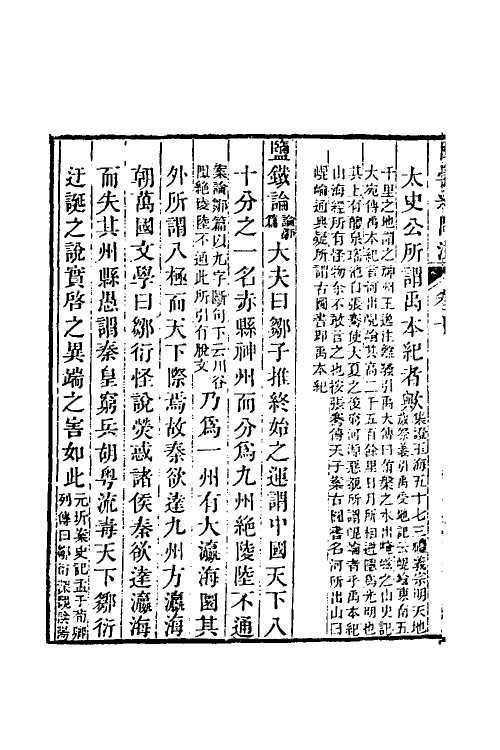 太史公所謂禹本紀者歟
千里之地謂之神州王逸注離騷引禹大傳曰洧槃之水出崦嵫之山史記
大宛傳禹本紀言河出崑崙其高二千五百餘里日月所相避隱爲光明也
其上有醴泉瑤池自張騫使大夏之後窮河源惡覩所謂崑崙者乎禹本紀
山海經所有怪物余不敢言之也按張騫傳天子案古圖書名河所出山曰
崐崘通典疑所謂古圖書即禹本紀
鹽鐵論論鄒篇大夫曰鄒子推終始之運謂中國天下八
十分之一名赤縣神州而分爲九州絶陵陸不通
案論鄒篇以九字斷句下云川谷
阻絶陵陸不通此所引有脫文乃爲一州有大瀛海圜其
外所謂八極而天下際焉故秦欲達九州方瀛海
朝萬國文學曰鄒衍怪說熒惑諸侯秦欲達瀛海
而失其州縣愚謂秦皇窮兵胡粤流毒天下鄒衍
迂誕之說實啓之異端之害如此元圻案史記孟子荀卿
列傳曰鄒衍深觀陰陽